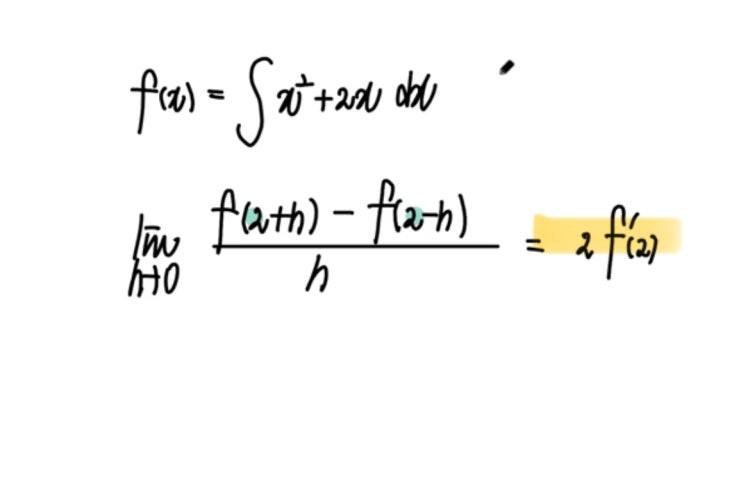 f(x) = ∫ x² + 2x dx
lim h→0 (f(2+h) − f(2−h)) / h = 2f'(2)